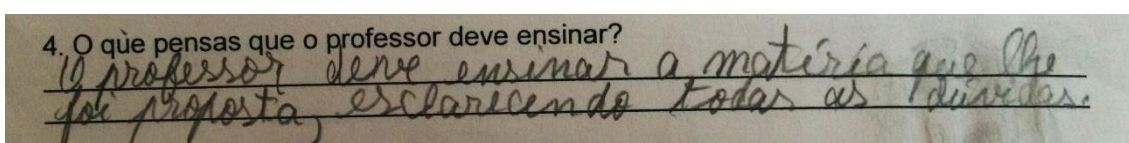 4. O que pensas que o professor deve ensinar?
O professor deve ensinar a matéria que lhe
foi proposta, esclarecendo todas as dúvidas.